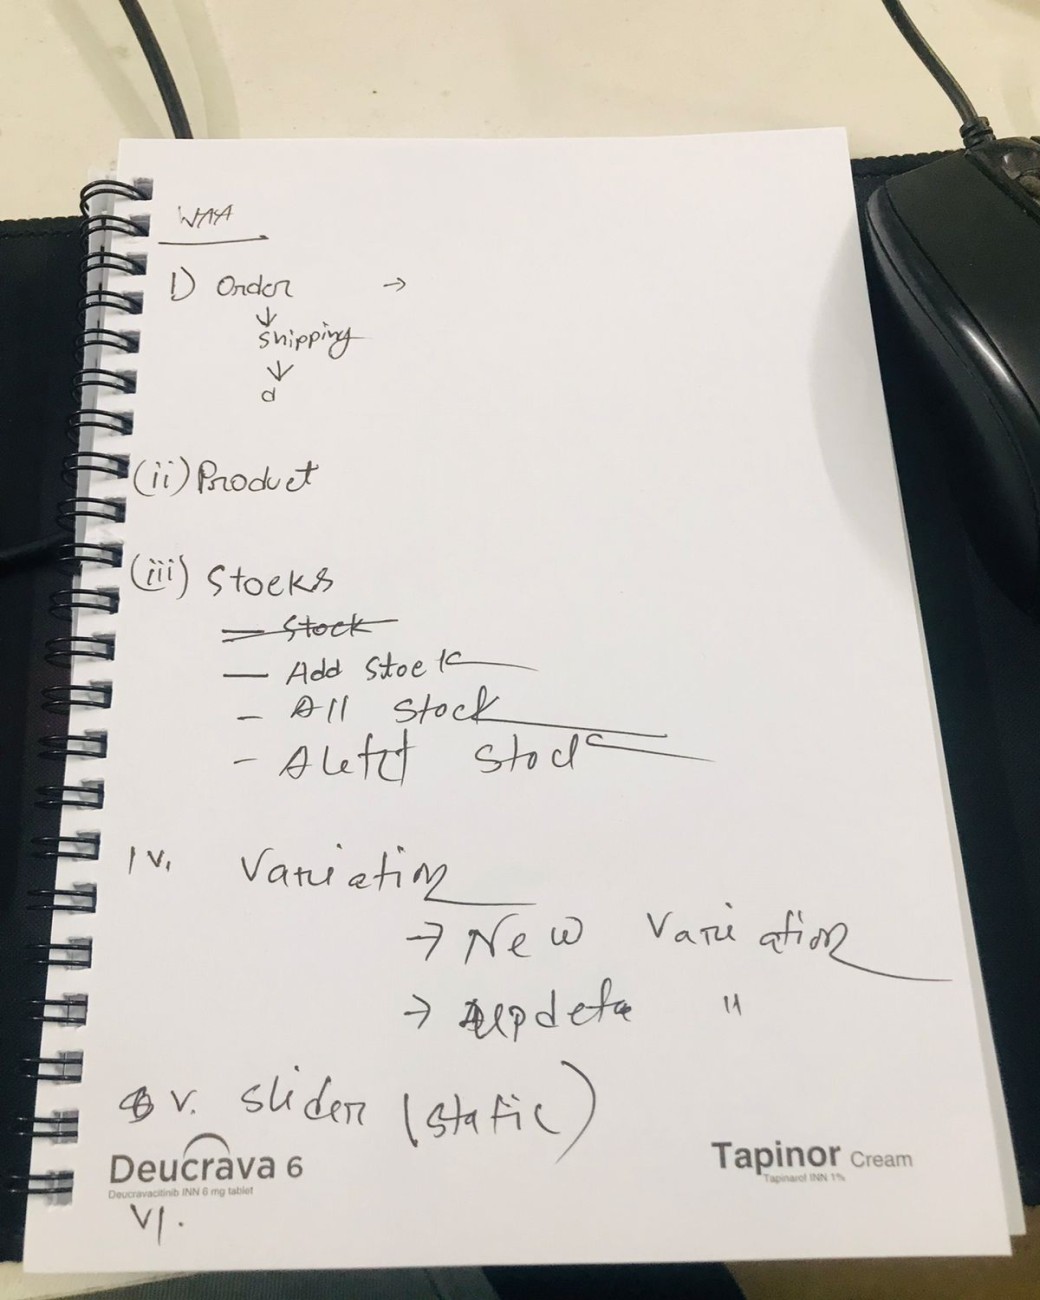 1) Order →
↓
Shipping
↓
d
(ii) Product
(iii) Stocks
— Stock
— Add Stock
- All Stock
- Alert Stock
iv. Variation
→ New Variation
→ update "
v. Slider (Static)
Deucrava 6
Deucravacitinib INN 6 mg tablet
Tapinor Cream
Tapinarof INN 1%
VI.